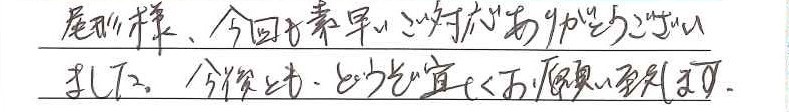 尾形様、今回も素早いご対応ありがとうござい
ました。今後とも、どうぞ宜しくお願い致します.